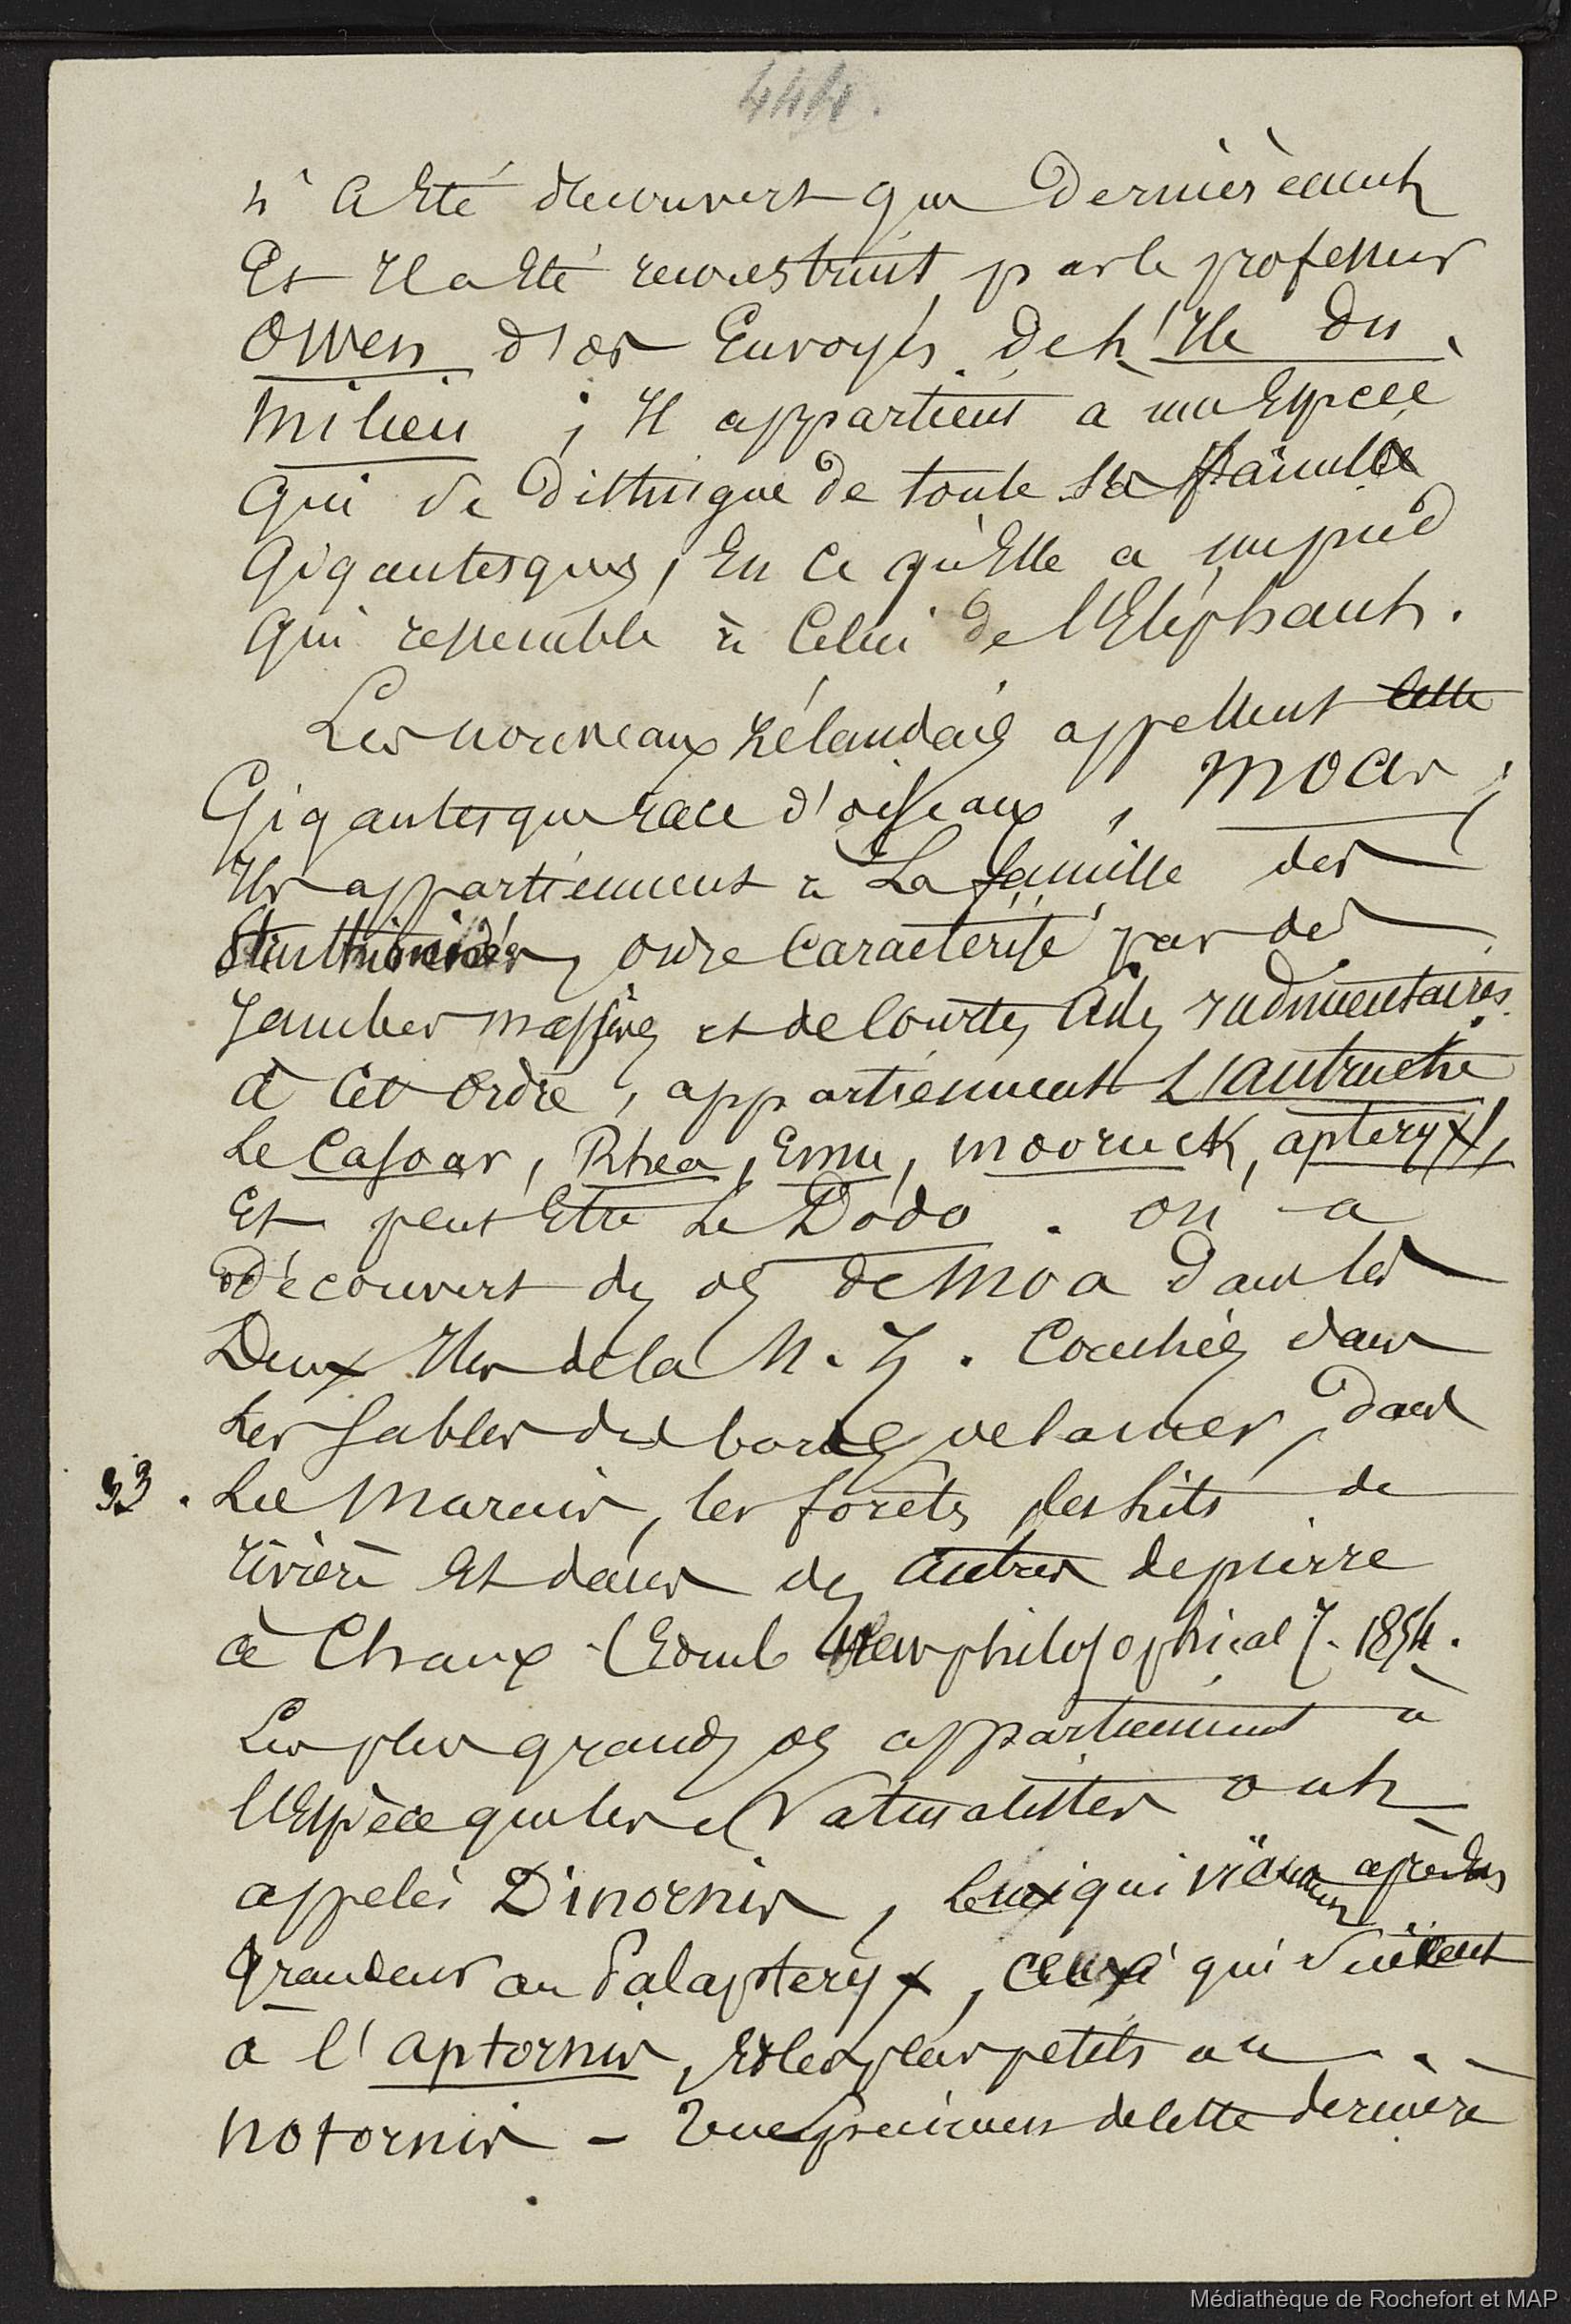 444.
n'a Eté decouvert que Dernièrement
Et Il a Eté reconstruit par le professeur
Owen d'os Envoyés de l'Ile du
milieu ; Il appartient a une Espèce
qui se Distingue de toute la famille
Gigantesque, En ce qu'Elle a un pied
qui ressemble à Celui de l'Eléphant.
Les nouveaux Zélandais appellent cette
Gigantesque race d'oiseaux, MOAs ;
Ils appartiennent à La famille des
Struthionidés, ordre caracterisé par des
Jambes massives et de courtes ailes rudimentaires.
à cet ordre, appartiennent L'autruche
Le Casoar, Rhea, Emu, mooruck, apteryx,
Et peut Etre Le Dodo. on a
Découvert des os de Moa dans les
Deux Iles de la N. Z. Couchés dans
Les sables des bords de la mer, dans
33. Les Marais, les forêts, les lits de
rivière Et dans des antres de pierre
à Chaux (Edimb New philosophical J. 1854.
Les plus grands os appartiennent à
l'Espèce que les Naturalistes ont
appelés Dinornis, ceux qui viennent après en
Grandeur au Palapteryx, ceux qui suivent
a l'aptornis, Et les plus petits au
notornis – Un specimen de cette dernière
Médiathèque de Rochefort et MAP